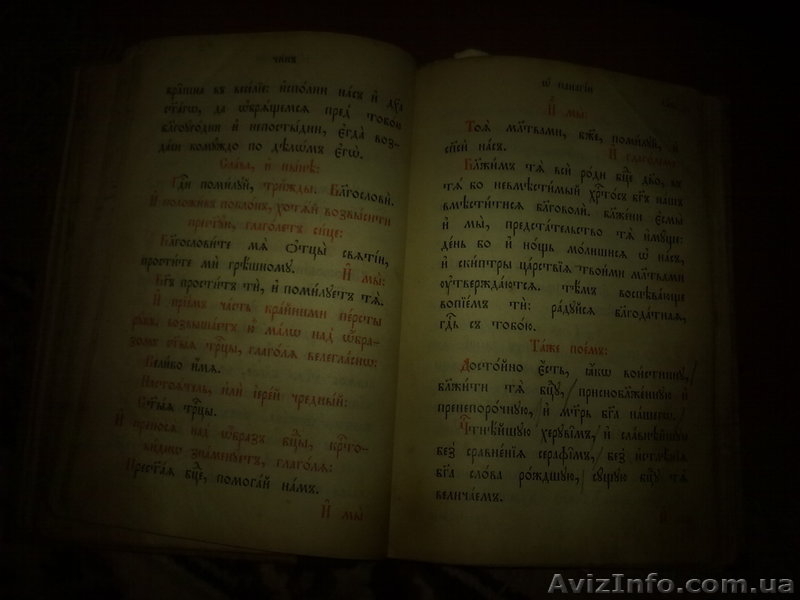 чинъ
бра́шна въ весе́лїе: и҆спо́лни на́съ и҆ дх҃а
ст҃а́гѡ, да ѡ҆брѧ́щемсѧ пред̾ тобо́ю
бл҃гоꙋго́дни и҆ непосты́дни, є҆гда̀ воз-
да́си комꙋ́ждо по дѣлѡ́мъ є҆гѡ̀.
Сла́ва, и҆ ны́нѣ:
Гдⷭ҇и поми́лꙋй, три́жды. Бл҃гословѝ.
И҆ положи́въ покло́нъ, хотѧ́й возвы́сити
пристꙋ́пи, глаго́летъ си́це:
Бл҃гослови́те мѧ̀ ѻ҆тцы̀ свѧті́и,
прости́те мѝ грѣ́шномꙋ. И҆ мы̀:
Бг҃ъ прости́тъ тѝ, и҆ поми́лꙋетъ тѧ̀.
И҆ прїи́мъ ча́сть кра́йними пе́рсты
рꙋ́къ, возвыша́етъ ю҆̀ ма́лѡ над̾ ѡ҆́бра-
зомъ ст҃ы́ѧ трⷪ҇цы, глаго́лѧ велегла́снѡ:
Ве́лїѡ и҆́мѧ.
Настоѧ́тель, и҆лѝ і҆ере́й чре́дный:
Ст҃ы́ѧ трⷪ҇цы.
И҆ приносѧ̀ над̾ ѡ҆́бразъ бцⷣы, крⷭ҇то-
ви́днѡ зна́менꙋетъ, глаго́лѧ:
Прест҃а́ѧ бцⷣе, помога́й на́мъ.
И҆ мы̀
ѡ҆ панагі́и
И҆ мы̀:
Тоѧ̀ мл҃твами, бж҃е, поми́лꙋй, и҆
сп҃сѝ на́съ. И҆ глаго́лемъ
Бл҃жи́мъ тѧ̀ всѝ ро́ди бцⷣе дв҃о, въ
тѧ́ бо невмѣсти́мый хрⷭ҇то́съ бг҃ъ на́шъ
вмѣсти́тисѧ бл҃говолѝ. бл҃же́ни є҆смы̀
и҆ мы̀, предста́тельство тѧ̀ и҆мꙋ́ще:
де́нь бо и҆ но́щь мо́лишисѧ ѡ҆ на́съ,
и҆ ски́птры ца́рствїѧ твои́ми мл҃твами
ᲂу҆твержда́ютсѧ. тѣ́мъ воспѣва́юще
вопїе́мъ тѝ: ра́дꙋйсѧ бл҃года́тнаѧ,
гдⷭ҇ь съ тобо́ю.
Та́же пое́мъ:
Досто́йно є҆́сть, ꙗ҆́кѡ вои́стиннꙋ, /
бл҃жи́ти тѧ̀ бцⷣꙋ, / присноблаже́ннꙋю и҆
пренепоро́чнꙋю, / и҆ мт҃рь бг҃а на́шегѡ, /
Чтⷭ҇нѣ́йшꙋю херꙋві̑мъ, / и҆ сла́внѣйшꙋю
без̾ сравне́нїѧ серафі̑мъ, / без̾ и҆стлѣ́нїѧ
бг҃а сло́ва ро́ждшꙋю, / сꙋ́щꙋю бцⷣꙋ тѧ̀
велича́емъ.
И҆
AvizInfo.com.ua